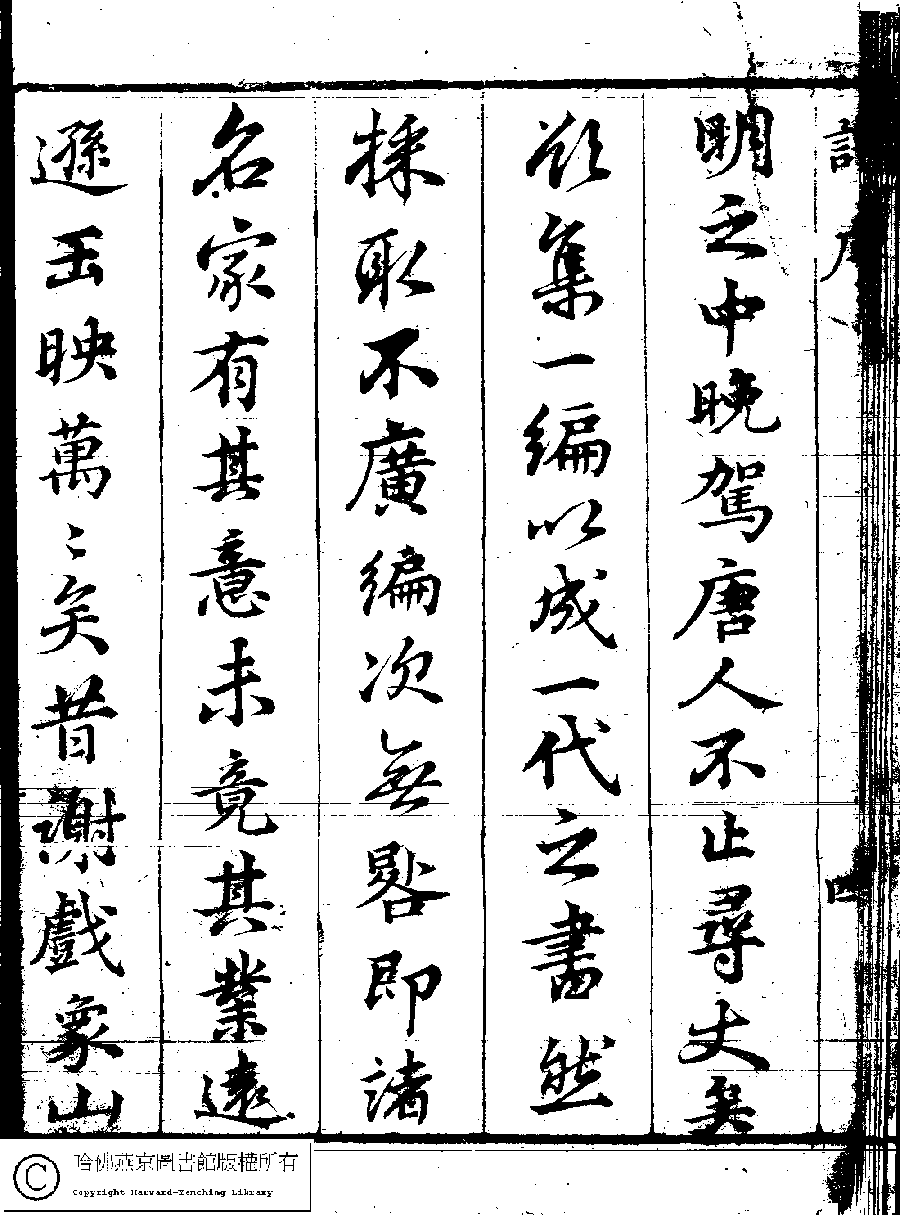 四
明之中晚駕唐人不止尋丈矣
欲集一編以成一代之書然
採取不廣編次無畧即諸
名家有其意未竟其業遠
遜玉映萬〻矣昔謝戲象山
哈佛燕京圖書館版權所有
Copyright Harvard-Yenching Library